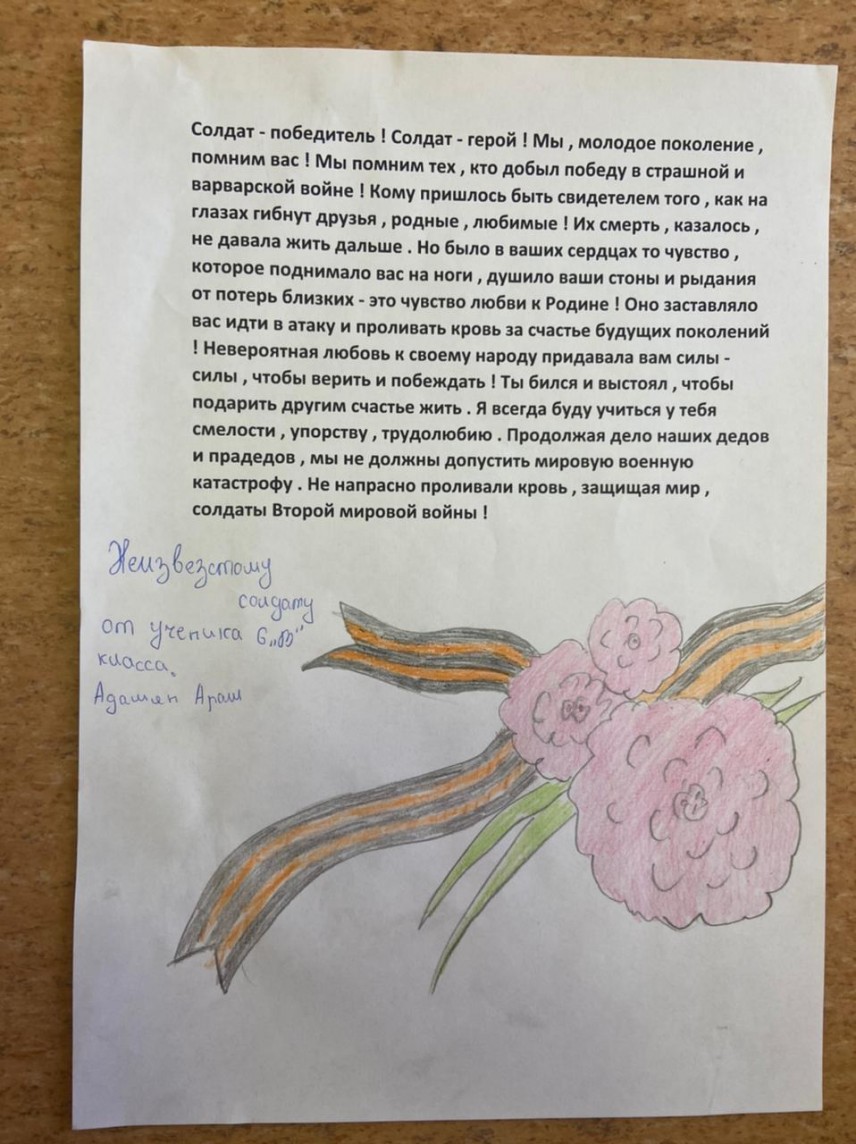 Солдат - победитель ! Солдат - герой ! Мы , молодое поколение ,
помним вас ! Мы помним тех , кто добыл победу в страшной и
варварской войне ! Кому пришлось быть свидетелем того , как на
глазах гибнут друзья , родные , любимые ! Их смерть , казалось ,
не давала жить дальше . Но было в ваших сердцах то чувство ,
которое поднимало вас на ноги , душило ваши стоны и рыдания
от потерь близких - это чувство любви к Родине ! Оно заставляло
вас идти в атаку и проливать кровь за счастье будущих поколений
! Невероятная любовь к своему народу придавала вам силы -
силы , чтобы верить и побеждать ! Ты бился и выстоял , чтобы
подарить другим счастье жить . Я всегда буду учиться у тебя
смелости , упорству , трудолюбию . Продолжая дело наших дедов
и прадедов , мы не должны допустить мировую военную
катастрофу . Не напрасно проливали кровь , защищая мир ,
солдаты Второй мировой войны !
Неизвезстому
солдату
от ученика 6 „В"
класса.
Адамян Арам